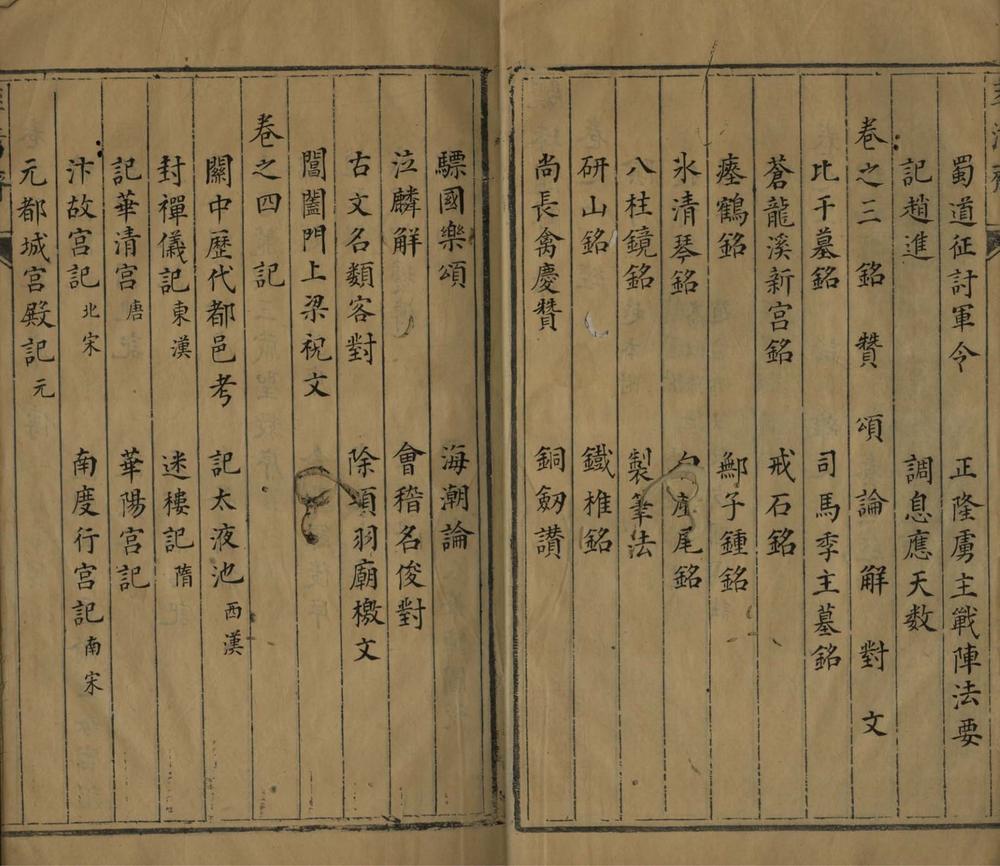 蜀道征討軍令 正隆虜主戰陣法要
記趙進 調息應天数
卷之三 銘 贊 頌 論 解 對 文
比干墓銘 司馬季主墓銘
蒼龍溪新宫銘 戒石銘
瘞鶴銘 鄦子鍾銘
氷清琴銘 尾銘
八柱鏡銘 製筆法
研山銘 鐵椎銘
尚長禽慶贊 銅劒讃
驃國樂頌 海潮論
泣麟解 會稽名俊對
古文名類客對 除項羽廟檄文
閶闔門上梁祝文
卷之四 記
關中歷代都邑考 記太液池 西漢
封禪儀記 東漢 迷樓記 隋
記華清宫 唐 華陽宫記
汴故宫記 北宋 南度行宫記 南宋
元都城宫殿記 元